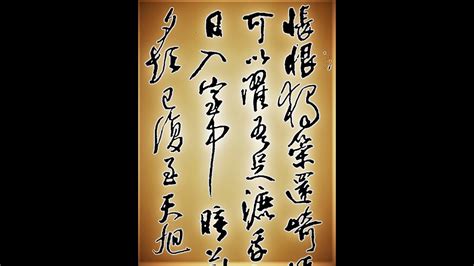 悵恨獨策還崎
可以濯吾足漉我
日入室中暗
夕短已復至天旭